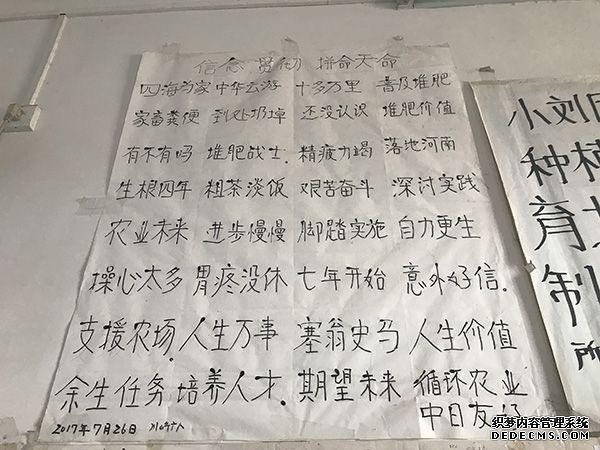 信念 贯彻 拼命天命
四海为家 中华云游 十多万里 普及堆肥
家畜粪便 到处扔掉 还没认识 堆肥价值
有不有吗 堆肥战士. 精疲力竭 落地河南
生根四年 粗茶淡饭 艰苦奋斗 深讨实践
农业未来 进步慢慢 脚踏实施 自力更生
操心太多 胃疼没休 七年开始 意外好信.
支援农场. 人生万事 塞翁史马 人生价值
余生任务 培养人才. 期望未来 循环农业
中日友好
2017年7月26日
小刘
种植
育
制
所
织梦内容管理系统
DEDECMS.COM